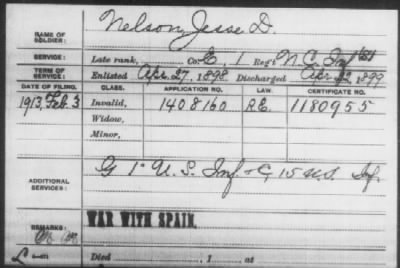 NAME OF SOLDIER: Nelson, Jesse D.
SERVICE: Late rank, Co. E, 1 Reg't N.C. Inf
TERM OF SERVICE: Enlisted Apr. 27, 1898 Discharged Apr. 22 1899
DATE OF FILING. CLASS. APPLICATION NO. LAW. CERTIFICATE NO.
1913, Feb. 3 Invalid, 1408160 R.E. 1180955
Widow,
Minor,
ADDITIONAL SERVICES: G 1" U.S. Inf + C, 15 U.S. Inf.
REMARKS: WAR WITH SPAIN.
Died , 1 , at